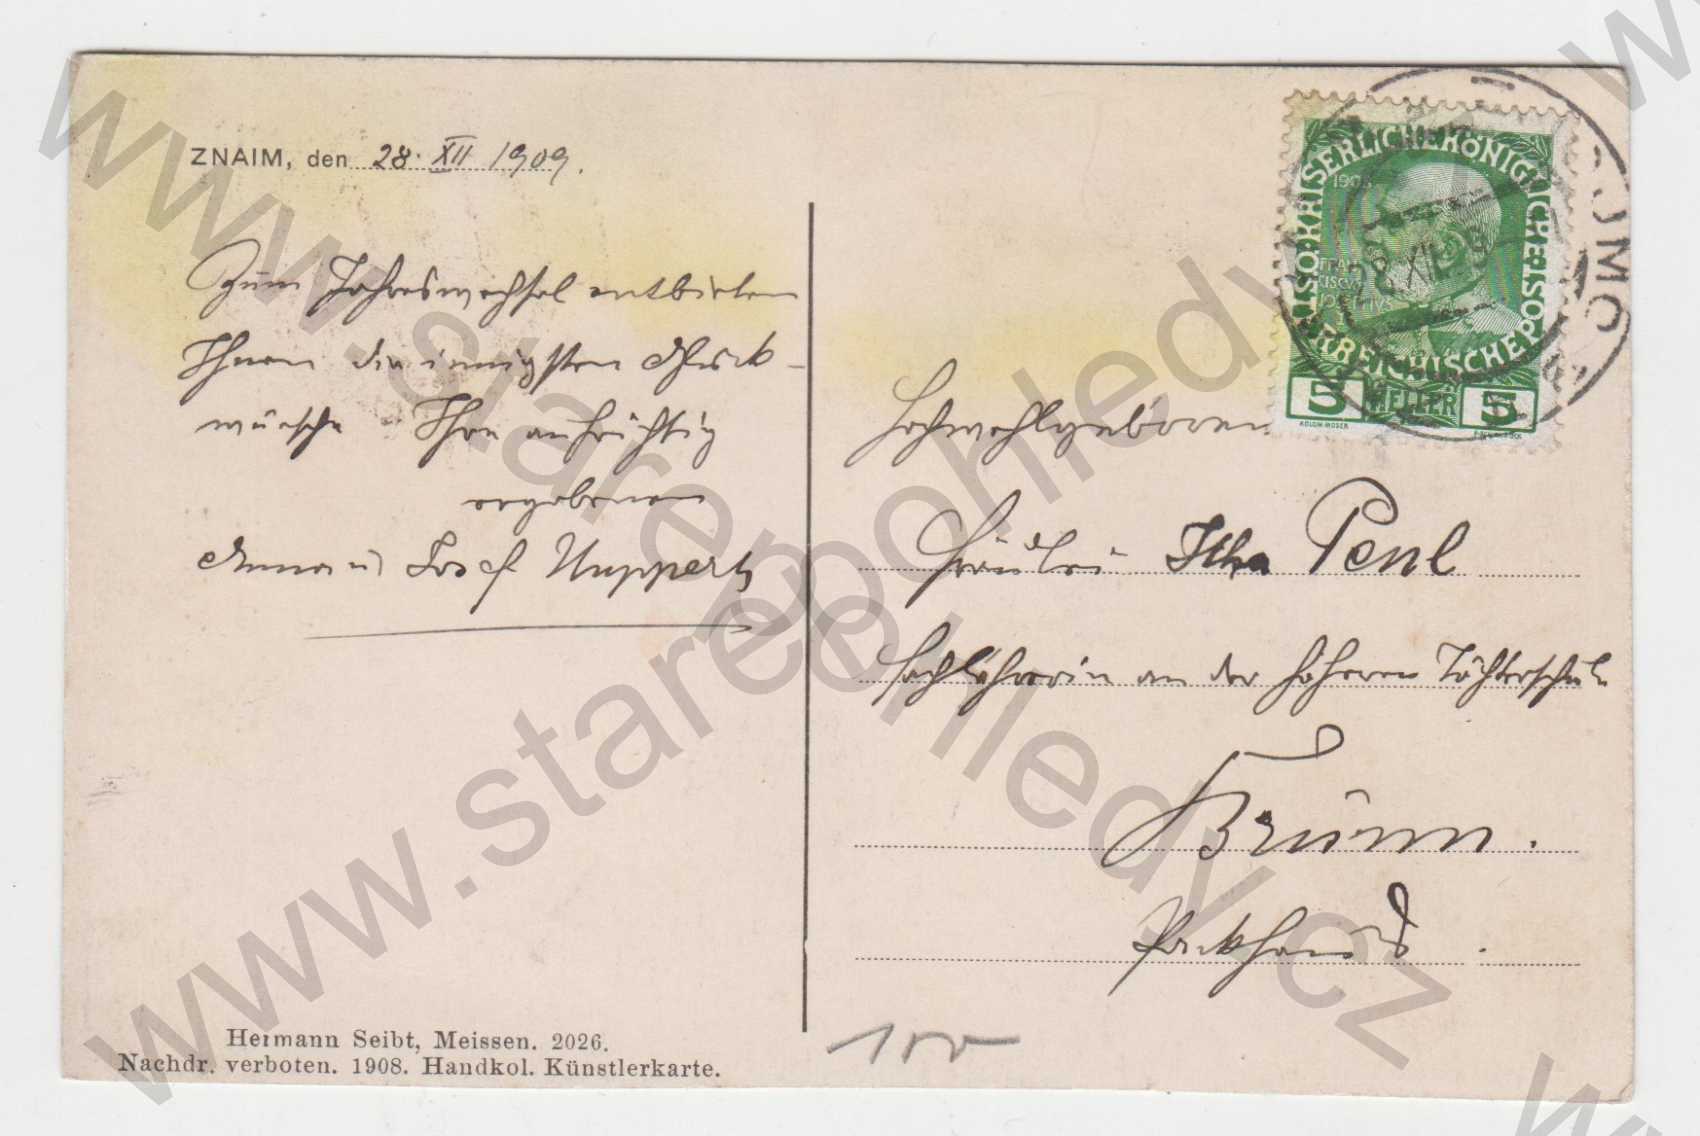 ZNAIM, den 28. XII 1909.
Zum Jahreswechsel entbieten
Ihnen die innigsten Glück-
wünsche Ihre aufrichtig
ergebenen
Anna u Josef Huppertz
KAISERLICHE KÖNIGLICHE
ÖSTERREICHISCHE POST
1908
FRAN
CISCVS
IOSEPHVS
5 HELLER 5
KOLOM. MOSER
28 XII 09
Hochwohlgeboren
Fräulein Ilka Penl
Fachlehrerin an der höheren Töchterschule
Brünn.
Packhaus
Hermann Seibt, Meissen. 2026.
Nachdr. verboten. 1908. Handkol. Künstlerkarte.
100
www.starepohledy.cz
www.starepohledy.cz